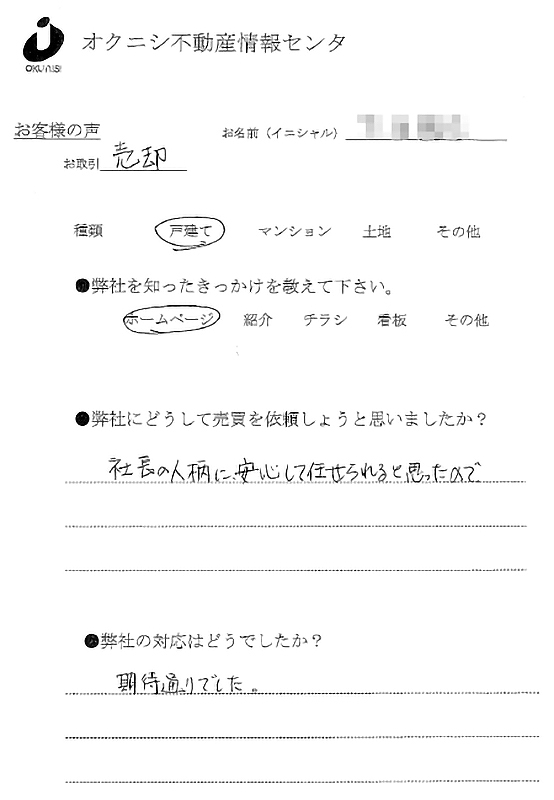 オクニシ不動産情報センタ
OKUNISI
お客様の声
お名前（イニシャル）
お取引 売却
種類 戸建て マンション 土地 その他
●弊社を知ったきっかけを教えて下さい。
ホームページ 紹介 チラシ 看板 その他
●弊社にどうして売買を依頼しょうと思いましたか？
社長の人柄に、安心して任せられると思ったので
●弊社の対応はどうでしたか？
期待通りでした。